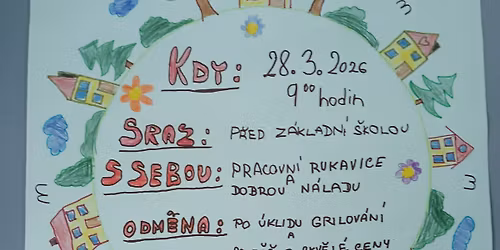 KDY: 28.3.2026
9⁰⁰ hodin
SRAZ: PŘED ZÁKLADNÍ ŠKOLOU
S SEBOU: PRACOVNÍ RUKAVICE
A
DOBROU NÁLADU
ODMĚNA: PO ÚKLIDU GRILOVÁNÍ
A
CENY